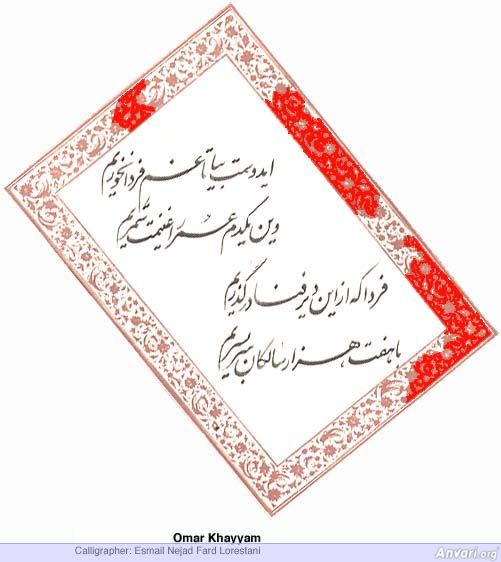 ایدوست بیا تا غم فردا نخوریم
وین یکدم عمر را غنیمت شمریم
فردا که از این دیر فنا درگذریم
با هفت هزار سالگان سر بسریم
Omar Khayyam
Calligrapher: Esmail Nejad Fard Lorestani
Anvari.org